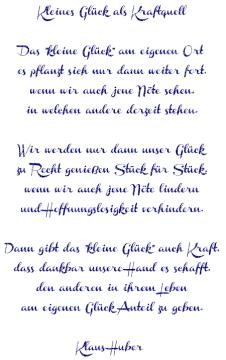 Kleines Glück als Kraftquell
Das "kleine Glück" am eigenen Ort
es pflanzt sich nur dann weiter fort,
wenn wir auch jene Nöte sehen,
in welchen andere derzeit stehen.
Wir werden nur dann unser Glück
zu Recht genießen Stück für Stück,
wenn wir auch jene Nöte lindern
und Hoffnungslosigkeit verhindern.
Dann gibt das "kleine Glück" auch Kraft,
dass dankbar unsere Hand es schafft,
den anderen in ihrem Leben
am eigenen Glück Anteil zu geben.
Klaus Huber